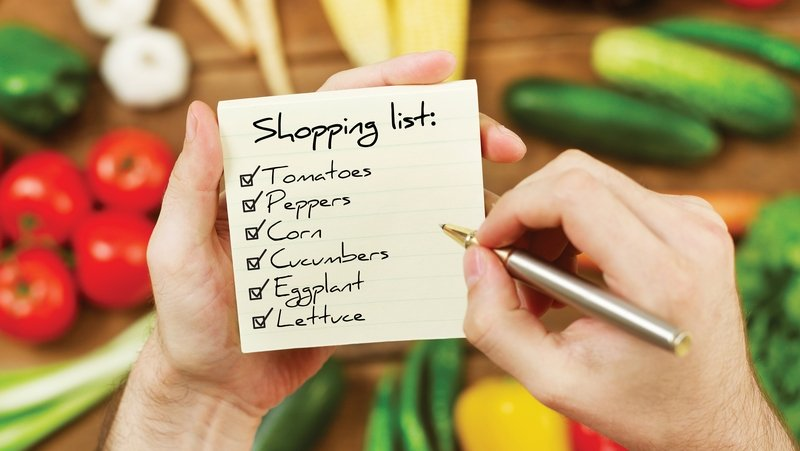 Shopping list:
☑ Tomatoes
☑ Peppers
☑ Corn
☑ Cucumbers
☑ Eggplant
☑ Lettuce